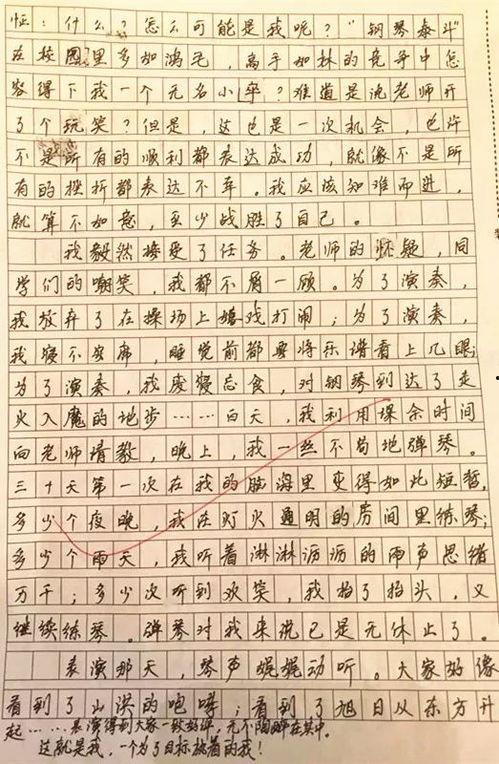 怔：什么？怎么可能是我呢？"钢琴泰斗"
在校园里多如鸿毛，高手如林的竞争中怎
容得下我一个无名小卒？难道是沈老师开
了个玩笑？但是，这也是一次机会，也许
不是所有的顺利都表达成功，就像不是所
有的挫折都表达不幸。我应该知难而进，
就算不如意，至少战胜了自己。
我毅然接受了任务。老师的怀疑，同
学们的嘲笑，我都不屑一顾。为了演奏，
我放弃了在操场上嬉戏打闹；为了演奏，
我寝不安席，睡觉前都要将乐谱看上几眼；
为了演奏，我废寝忘食，对钢琴到达了走
火入魔的地步……白天，我利用课余时间
向老师请教，晚上，我一丝不苟地弹琴。
三十天第一次在我的脑海里变得如此短暂，
多少个夜晚，我在灯火通明的房间里练琴；
多少个雨天，我听着淋淋沥沥的雨声思绪
万千；多少次听到欢笑，我抬了抬头，又
继续练琴。弹琴对我来说已是无休止了。
表演那天，琴声娓娓动听。大家好像
看到了山洪的咆哮；看到了旭日从东方升
起……表演得到大家一致好评，无不陶醉在其中。
这就是我，一个为了目标执着的我！